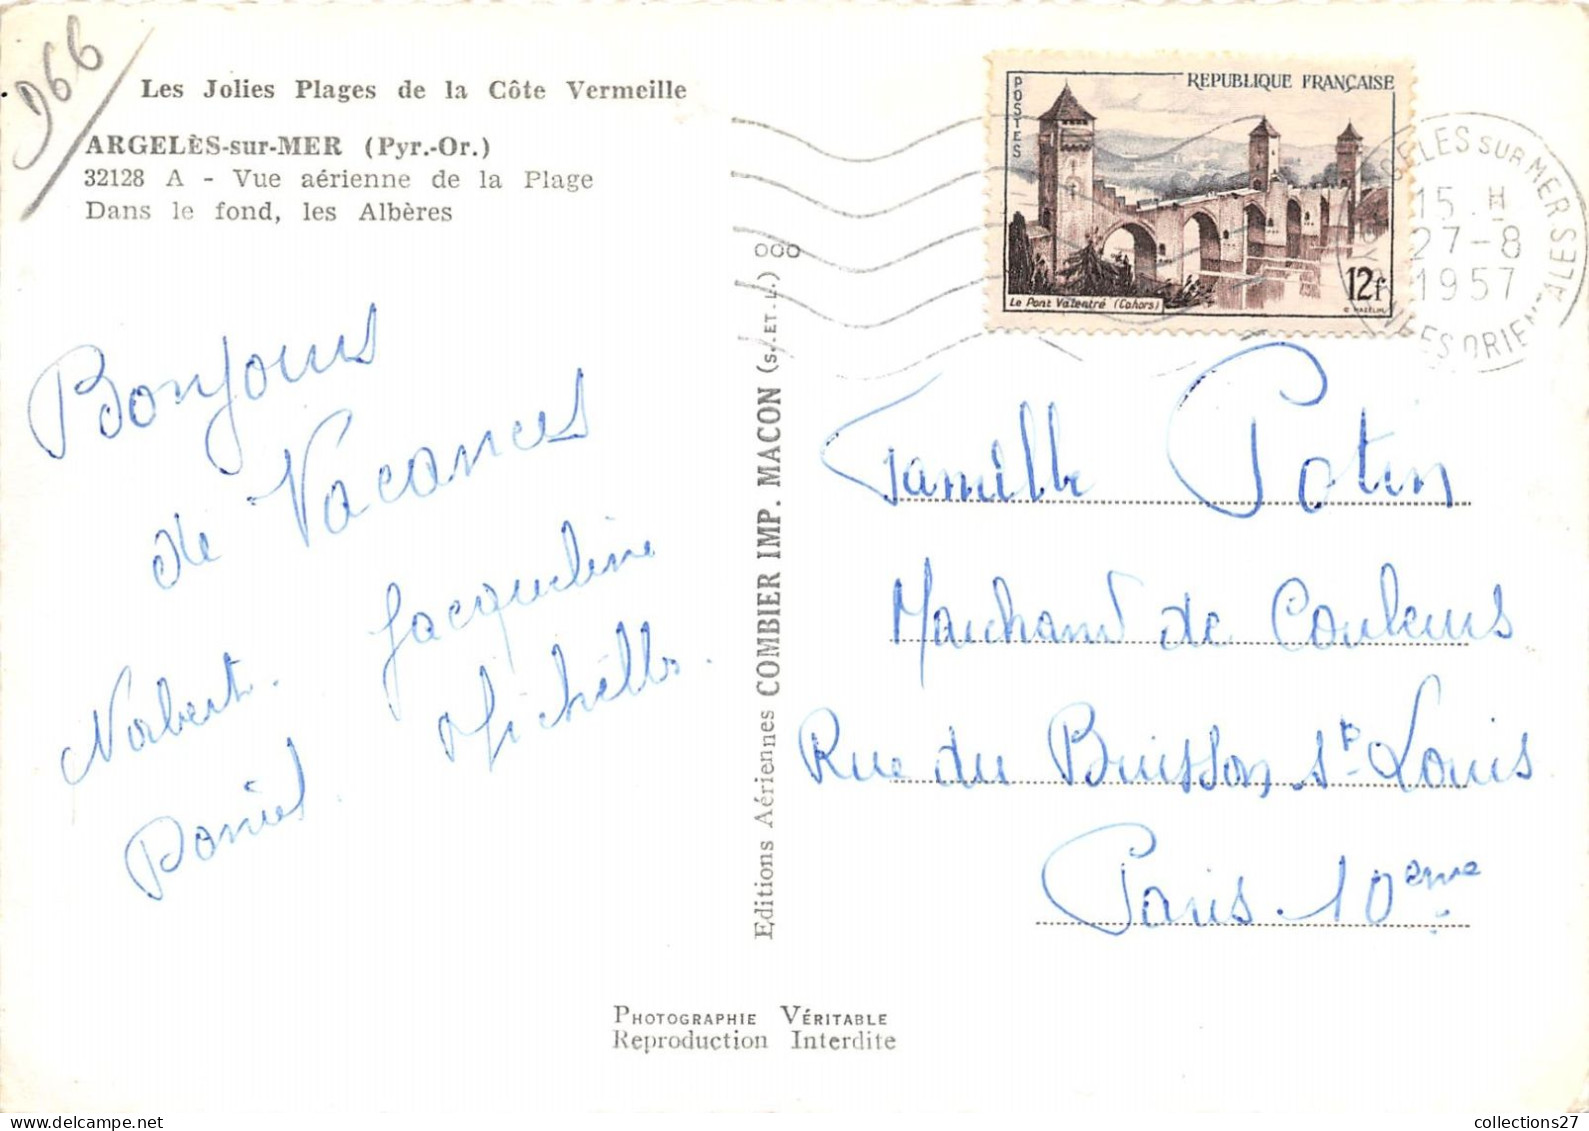 966
Les Jolies Plages de la Côte Vermeille
ARGELÈS-sur-MER (Pyr.-Or.)
32128 A - Vue aérienne de la Plage
Dans le fond, les Albères
Bonjours
de Vacances
Norbert. Jacqueline
Daniel. Michelle.
Editions Aériennes COMBIER IMP. MACON (S.-ET-L.) OOO
POSTES
REPUBLIQUE FRANÇAISE
Le Pont Valentré (Cahors)
12f
ARGELES SUR MER
15 H
27-8
1957
PYRENEES ORIENTALES
Famille Potin
Marchand de Couleurs
Rue du Buisson St Louis
Paris. 10eme
PHOTOGRAPHIE VÉRITABLE
Reproduction Interdite
collections27